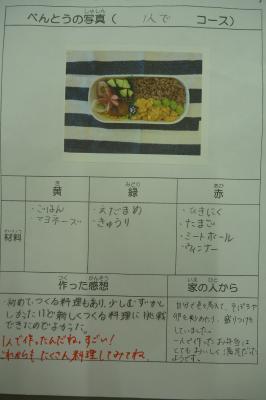 しゃしん
べんとうの写真( 1人で コース)
き
黄
みどり
緑
あか
赤
ざいりょう
材料
・ごはん
・マヨネーズ
・えだまめ
・きゅうり
・ひきにく
・たまご
・ミートボール
・ウィンナー
つく かんそう
作った感想
いえ ひと
家の人から
初めてつくる料理もあり、少しむずかし
かったけど新しくつくる料理に挑戦
できたのでよかった。
1人で作ったんだね。すごい!
これからもたくさん料理してみてね。
自分で考えて、そぼろや
卵を炒めたり、盛りつけを
していました。
一人で作ったお弁当は
とてもおいしく満足だった
ようです。